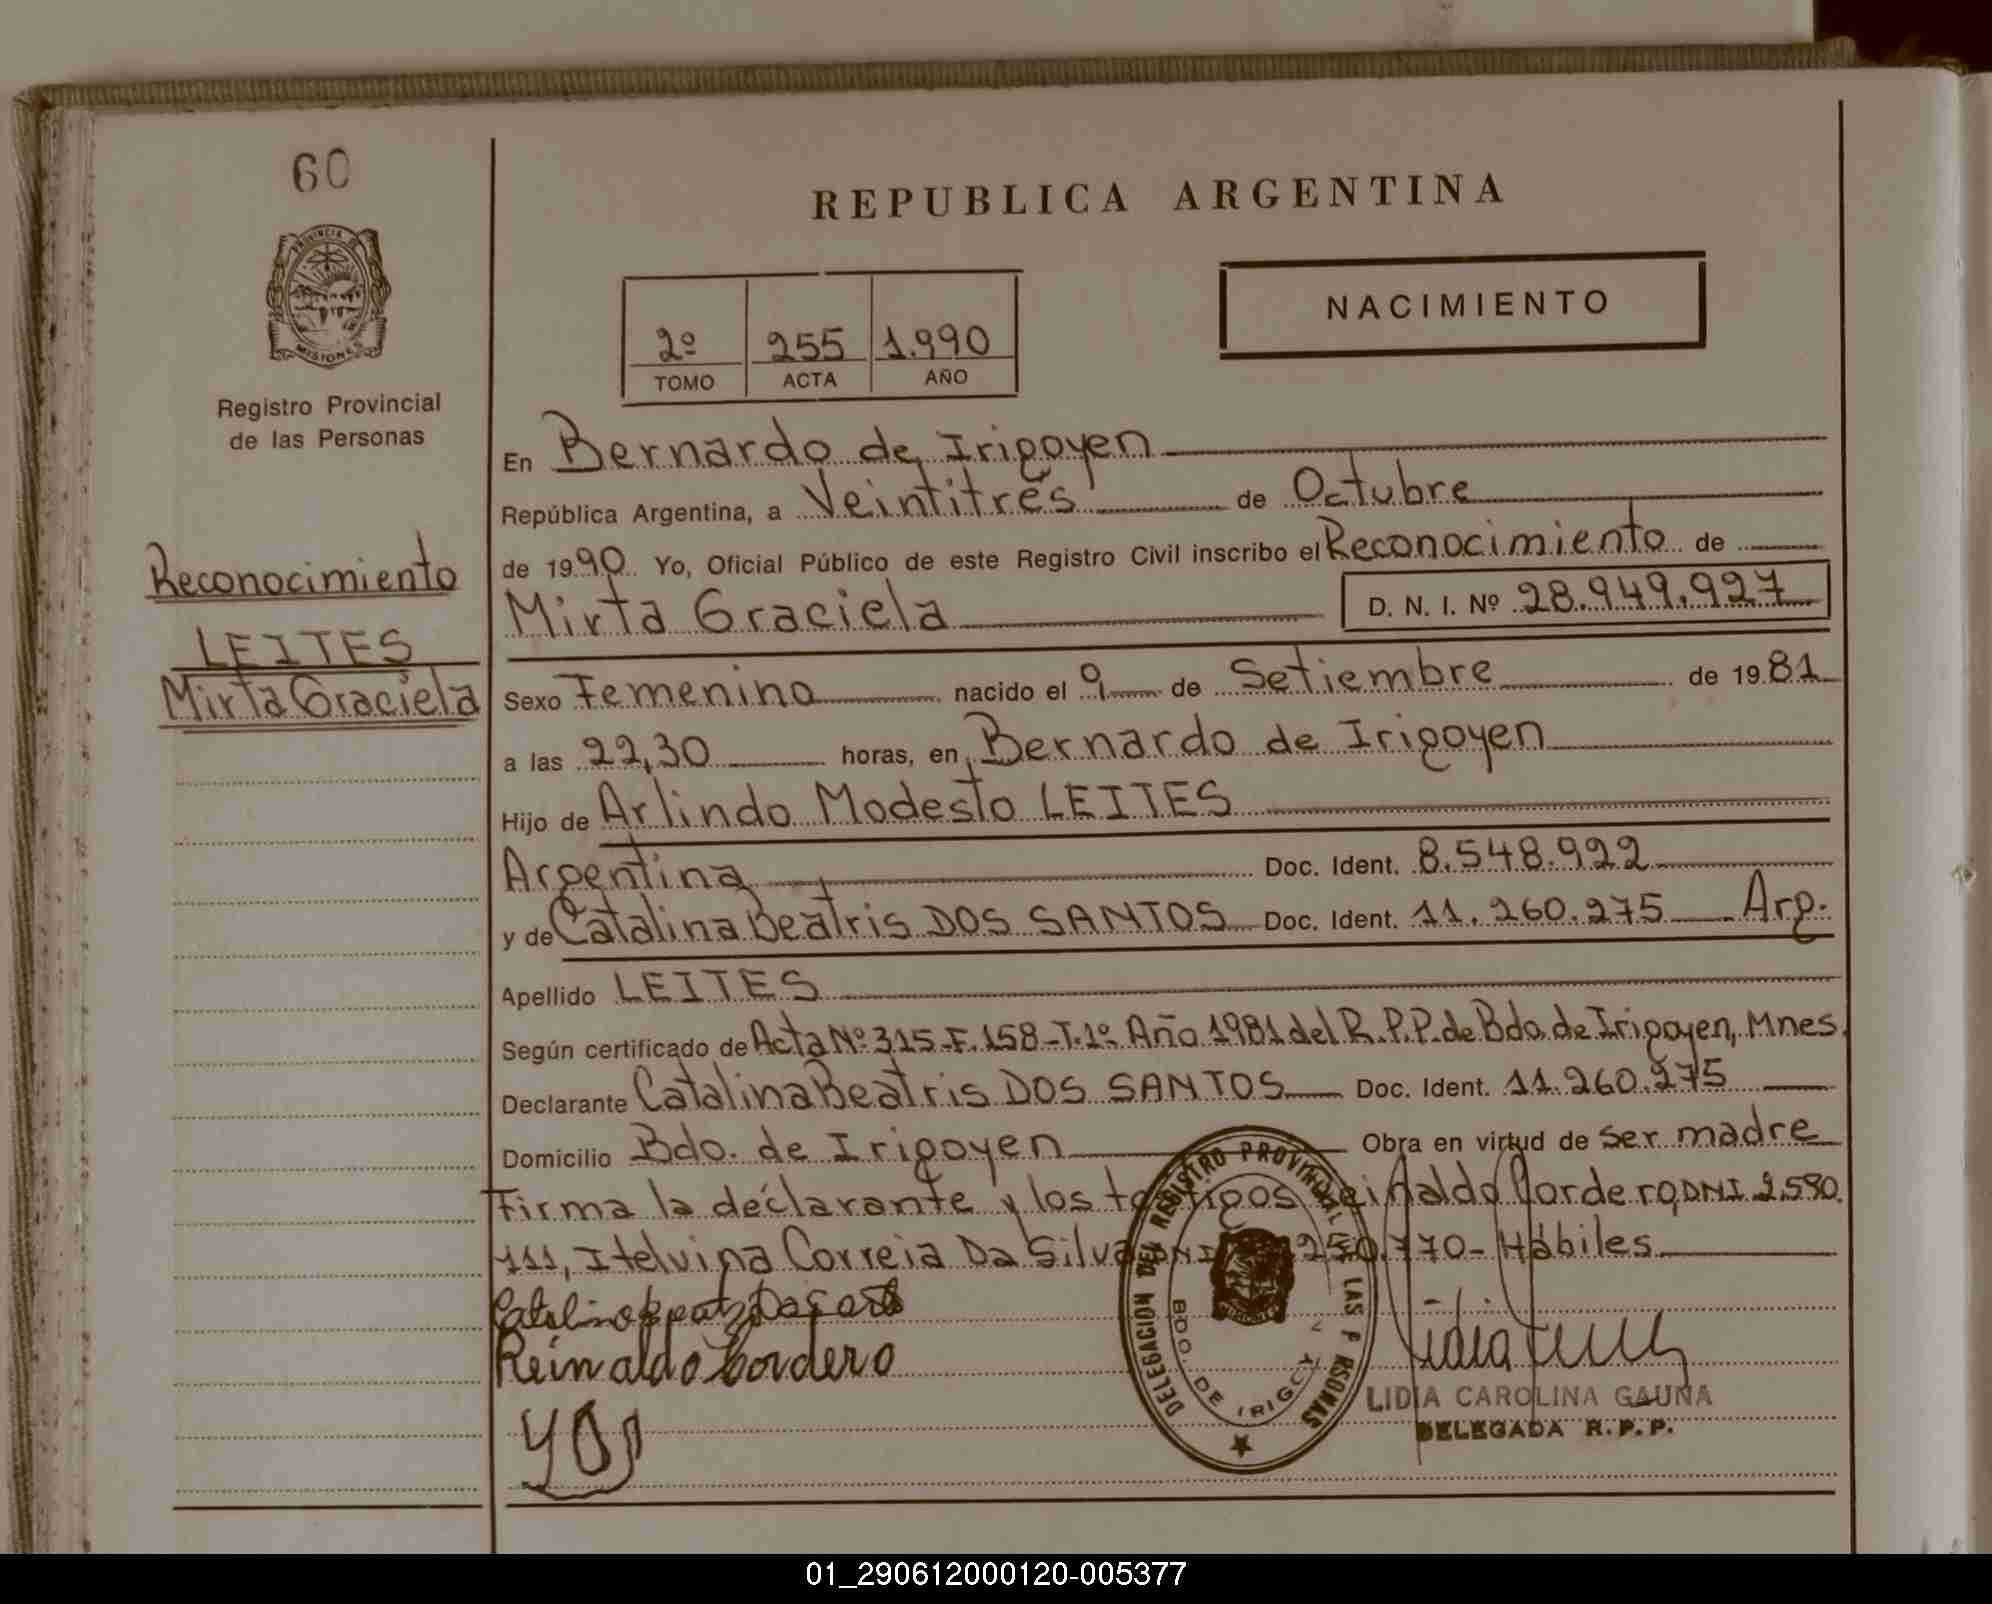 60
PROVINCIA DE
MISIONES
Registro Provincial
de las Personas
Reconocimiento
LEITES
Mirta Graciela
REPUBLICA ARGENTINA
2º 255 1.990
TOMO ACTA AÑO
NACIMIENTO
En Bernardo de Irigoyen
República Argentina, a Veintitrés de Octubre
de 1990. Yo, Oficial Público de este Registro Civil inscribo el Reconocimiento de
Mirta Graciela D. N. I. Nº 28.949.927
Sexo Femenino nacido el 9 de Setiembre de 1981
a las 22,30 horas, en Bernardo de Irigoyen
Hijo de Arlindo Modesto LEITES
Argentina Doc. Ident. 8.548.922
y de Catalina Beatris DOS SANTOS Doc. Ident. 11.260.275 Arg.
Apellido LEITES
Según certificado de Acta Nº 315-F.158-T.1º Año 1981 del R.P.P. de Bdo. de Irigoyen, Mnes.
Declarante Catalina Beatris DOS SANTOS Doc. Ident. 11.260.275
Domicilio Bdo. de Irigoyen Obra en virtud de ser madre
Firma la declarante y los testigos Reinaldo Cordero, DNI 2.590.
111, Itelvina Correia Da Silva DNI 250.770- Hábiles
Reinaldo Cordero
DELEGACION DEL REGISTRO PROVINCIAL LAS PERSONAS
BDO. DE IRIGOY
LIDIA CAROLINA GAUNA
DELEGADA R.P.P.
01_290612000120-005377